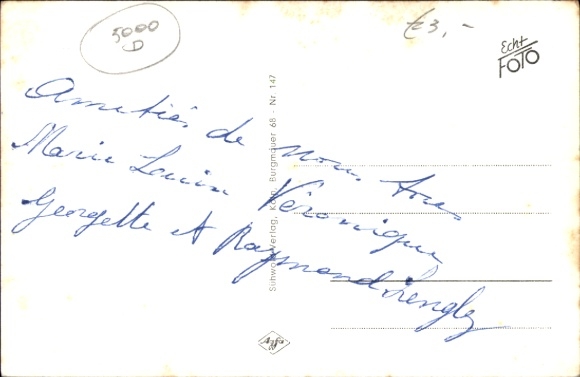 5000
D
€3,-
Echt
FOTO
Amitiés de nous tous
Marie Louise Véronique
Georgette et Raymond Lenglez
Südwest-Verlag, Köln, Burgmauer 68 - Nr 147